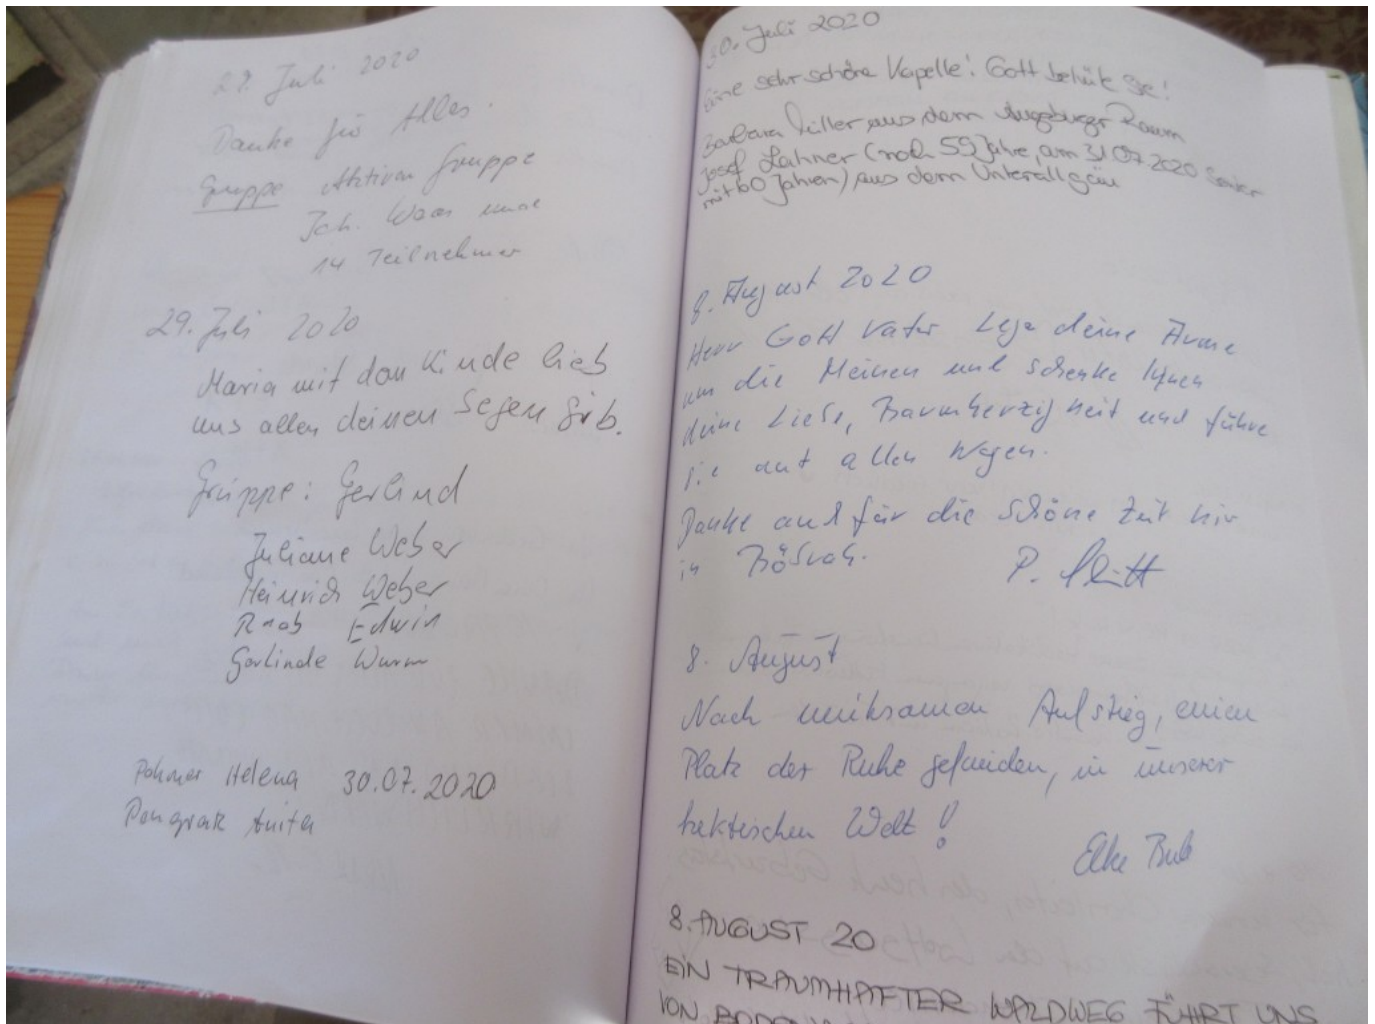 Juli 2020
Danke für Alles.
Gruppe Aktiven Gruppe
Joh. Waas und
14 Teilnehmer
29. Juli 2020
Maria mit dem Kinde lieb
uns allen deinen Segen gib.
Gruppe: Gerlind
Juliane Weber
Heinrich Weber
Raab Edwin
Gerlinde Wurm
Helena 30.07.2020
Anita
30. Juli 2020
Eine sehr schöne Kapelle! Gott behüte Sie!
Barbara aus dem Augsburger Raum
Josef Lahner (noch 59 Jahre, am 31.07.2020
mit 60 Jahren) aus dem Unterallgäu
8. August 2020
Herr Gott Vater Lege deine Arme
um die Meinen und schenke Ihnen
deine Liebe, Barmherzigkeit und führe
sie auf allen Wegen.
Danke auch für die schöne Zeit hier
in
P.
8. August
Nach mühsamen Aufstieg, einen
Platz der Ruhe gefunden, in unserer
hektischen Welt!
Elke Bub
8. AUGUST 20
EIN TRAUMHAFTER WALDWEG FÜHRT UNS
VON